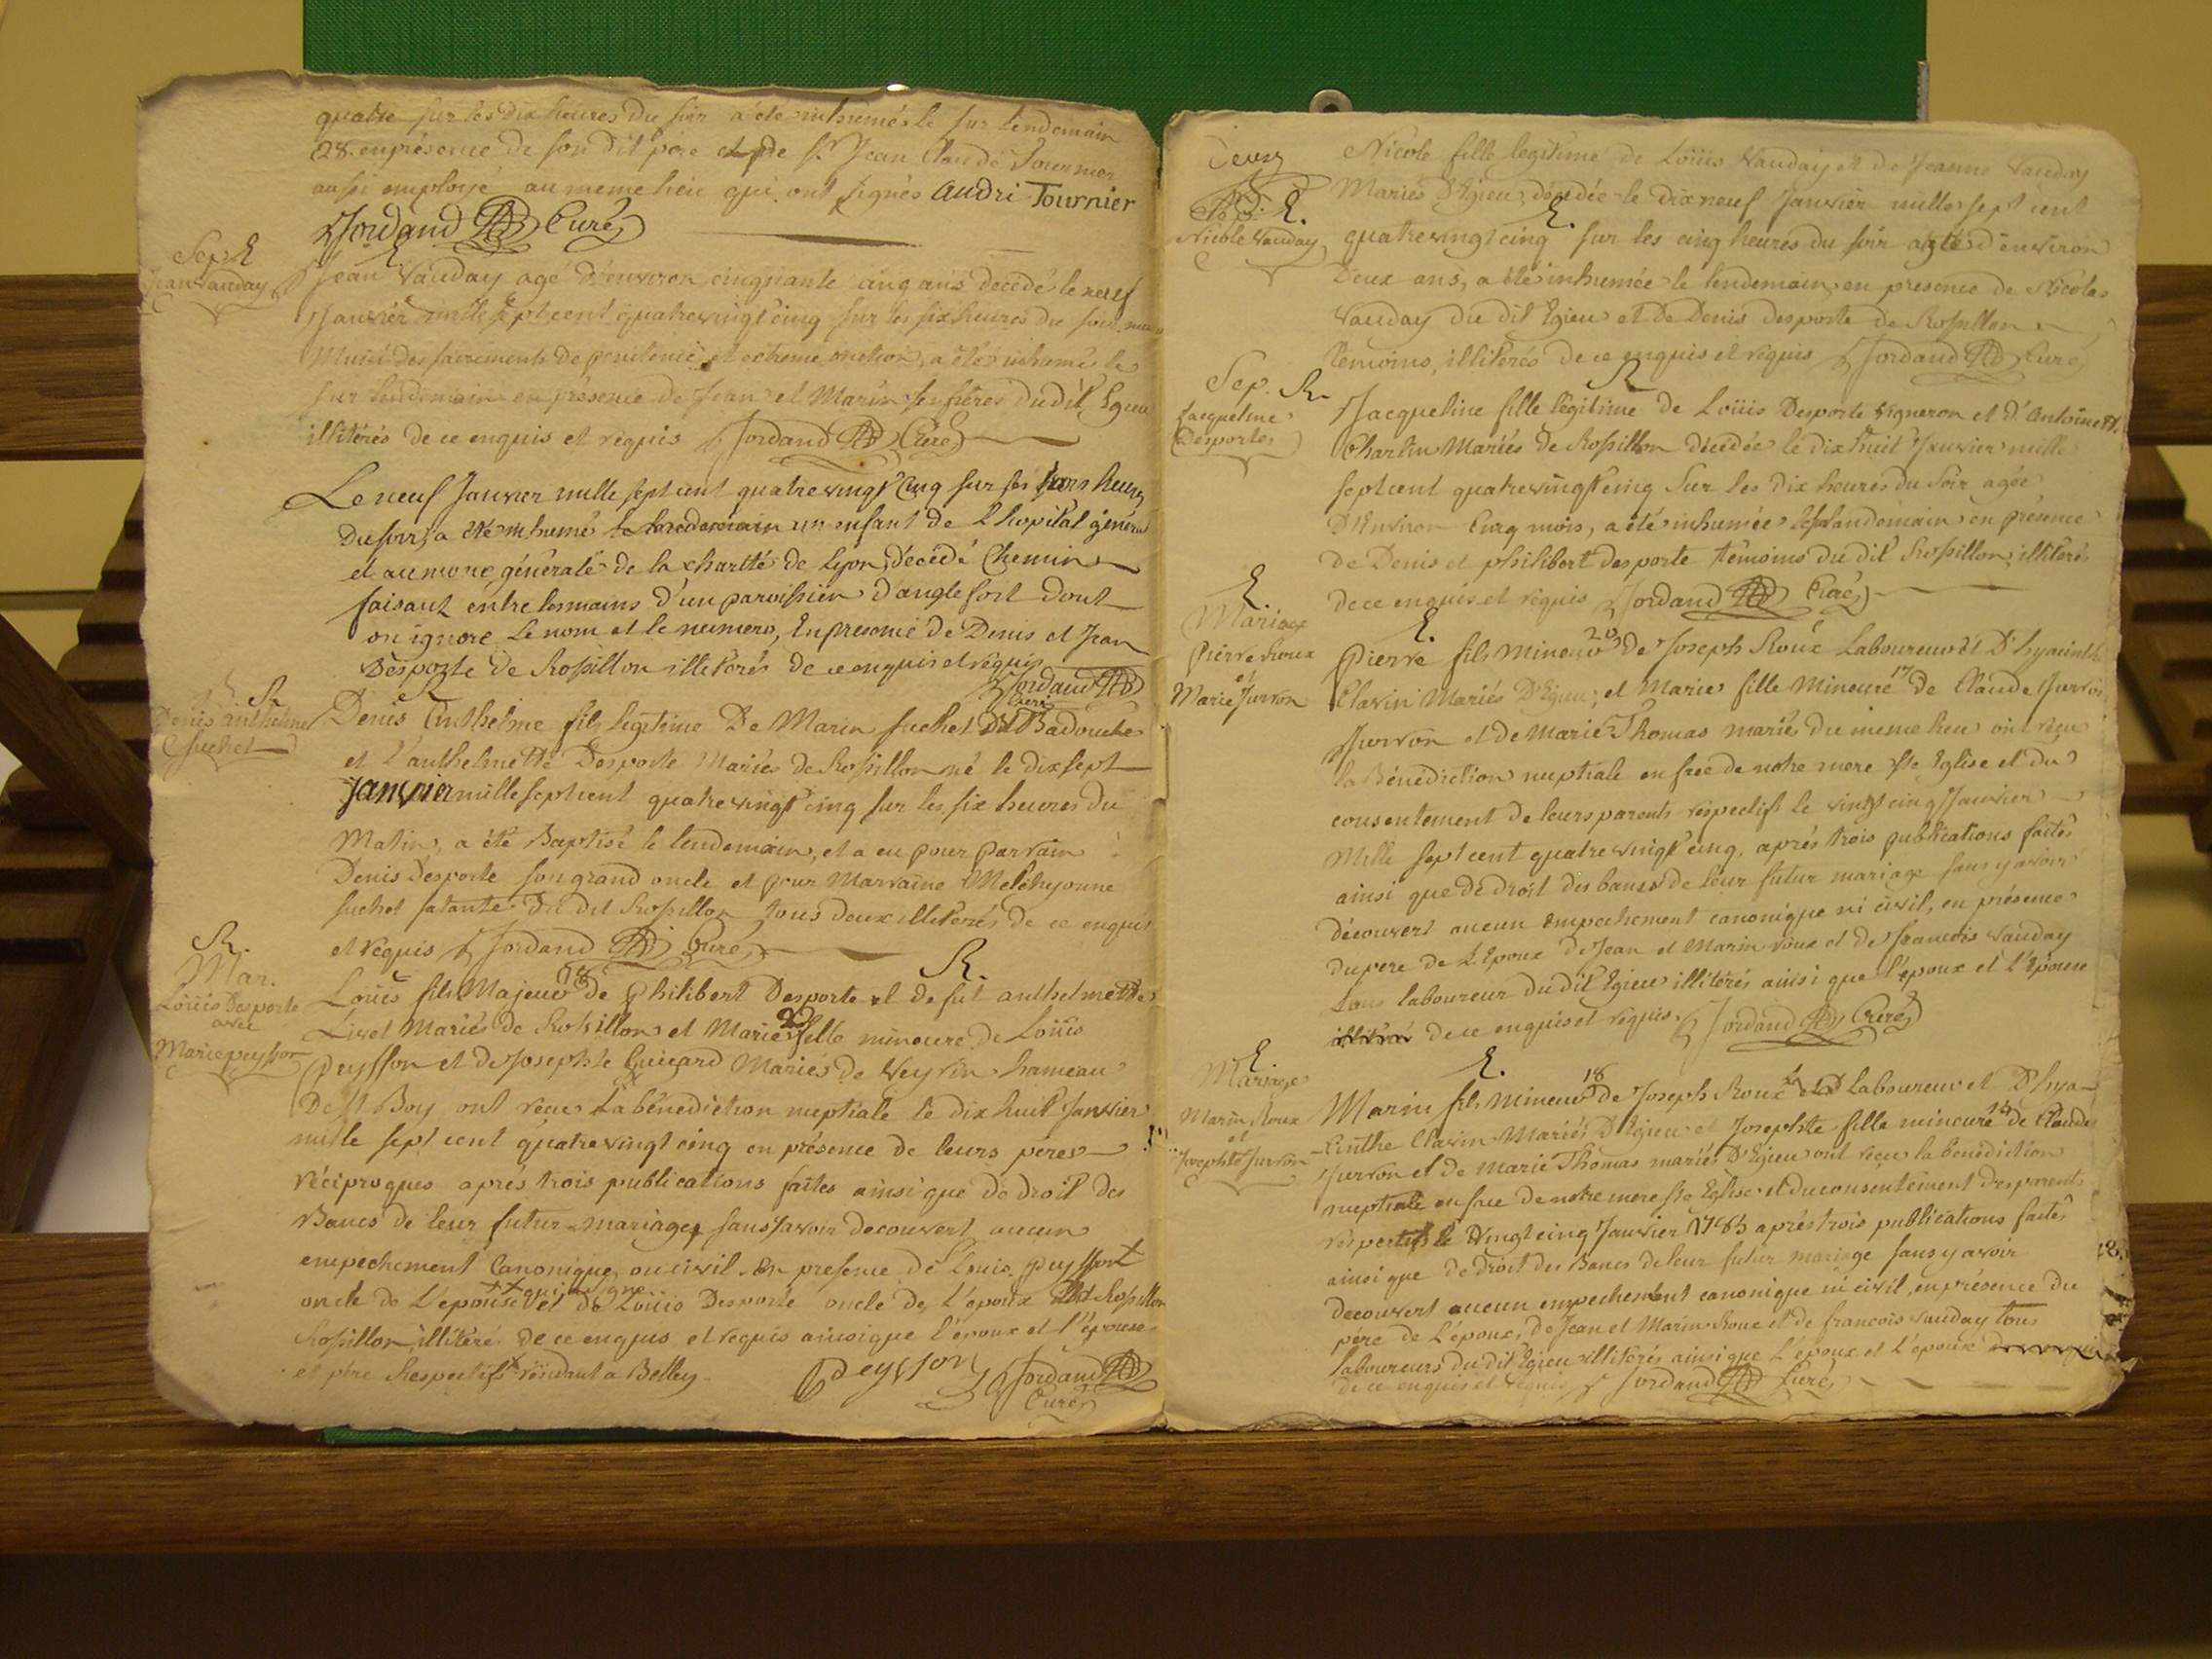 quatre sur les dix heures du soir a été inhumé le sur lendemain
28. en présence de son dit père et de sr. Jean Claude Tournier
aussi employé au meme lieu qui ont signés Audri Tournier
Jordand Curé
Sep. E
Jean Vauday
Jean Vauday agé d'environ cinquante cinq ans decédé le neuf
Janvier mille sept cent quatrevingt cinq sur les six heures du soir
Muni des sacrements de penitence et extreme onction, a été inhumé le
sur lendemain en présence de Jean et Marin ses frères du dit Egieu
illitérés de ce enquis et requis Jordand Curé
Le neuf Janvier mille sept cent quatre vingt Cinq sur les trois heures
du soir, a été inhumé un enfant de l'hopital général
et aumone générale de la charitté de Lyon, décédé Chemin
faisant entre les mains d'un paroissien d'anglefort dont
on ignore le nom et le numero, En presence de Denis et Jean
Desporte de Rossillon illiterés de ce enquis et requis
Jordand
Curé
R.
Denis anthelme
Suchet
Denis Anthelme fils legitime De Marin Suchet dit Badouche
et d'anthelmette Desporte Mariés de Rossillon né le dix sept
Janvier mille sept cent quatre vingt cinq sur les six heures du
Matin, a été Baptisé le lendemain, et a eu pour parrain
Denis Desporte son grand oncle et pour Marraine Melchyonne
Suchet sa tante du dit Rossillon tous deux illiterés de ce enquis
et requis Jordand Curé
R.
Mar.
Loüis Desporte
avec
Marie peysson
R.
Loüis fils Majeur de Philibert Desporte et de fut anthelmette
Livet Mariés de Rossillon et Marie fille mineure de Loüis
Peysson et de Josephte Guigard Mariés de Veyrin hameau
De St Boy ont reçu la bénédiction nuptiale le dix huit Janvier
mille sept cent quatre vingt cinq en présence de leurs pères
réciproques après trois publications faites ainsi que de droit des
Bancs de leur futur mariage, sans avoir decouvert aucun
empechement Canonique ou civil en presence de Louis Peysson
++ qui a signé
oncle de L'epouse et de Loüis Desporte oncle de L'epoux dud. Rossillon
Rossillon, illitéré de ce enquis et requis ainsi que l'époux et l'épouse
et père Respectifs résidant a Belley
Peysson Jordand
Curé
Deux
Sep. E.
Nicole Vauday
E.
Nicole fille legitime de Loüis Vauday et de Jeanne Vauday
Mariés D'Egieu, décédée le dix neuf Janvier mille sept cent
quatre vingt cinq sur les cinq heures du soir agée d'environ
Deux ans, a été inhumée le lendemain en presence de Nicolas
Vauday du dit Egieu et de Denis desporte de Rossillon
témoins, illitérés de ce enquis et requis Jordand Curé
Sep. R.
Jacqueline
Desporte
R
Jacqueline fille légitime de Loüis Desporte vigneron et d'Antoinette
Charlin Mariés de Rossillon décédée le dix huit Janvier mille
sept cent quatre vingt cinq sur les dix heures du soir agée
D'Environ Cinq mois, a été inhumée le sur landemain en présence
de Denis et philibert desporte témoins du dit Rossillon, illitérés
de ce enquis et requis Jordand Curé
E.
Mariage
Pierre Roux
et
Marie Jurron
E.
20
Pierre fils Mineur de Joseph Roux Laboureur et D'hyacinthe
17
Clavin Mariés D'Egieu; et Marie fille Mineure de Claude Jurron
Jurron et de Marie Thomas mariés du meme lieu ont reçu
la Bénédiction nuptiale en face de notre mere Ste Eglise et du
consentement de leurs parents respectifs le vingt cinq Janvier
Mille sept cent quatre vingt cinq, après trois publications faites
ainsi que de droit des bancs de leur futur mariage sans y avoir
découvert aucun empechement canonique ni civil, en présence
du pere de L'Epoux de Jean et Marin Roux et de francois Vauday
tous laboureur du dit Egieu illitérés ainsi que l'époux et l'Epouse
de ce enquis et requis. Jordand Curé
E.
Mariage
Marin Roux
et
Josephte Jurron
E.
18
Marin fils Mineur de Joseph Roux Laboureur et D'hya-
14
-cinthe Clavin Mariés D'Egieu et Josephte fille mineure de Claude
Jurron et de Marie Thomas mariés D'Egieu ont reçu la benediction
nuptiale en face de notre mere Ste Eglise et du consentement des parents
respectifs le Vingt cinq Janvier 1785 après trois publications faites
ainsi que de droit des Bancs de leur futur mariage sans y avoir
decouvert aucun empechement canonique ni civil, en présence du
père de L'époux, de Jean et Marin Roux et de francois Vauday tous
laboureurs du dit Egieu illitérés ainsi que L'époux et L'épouse
de ce enquis et requis Jordand Curé